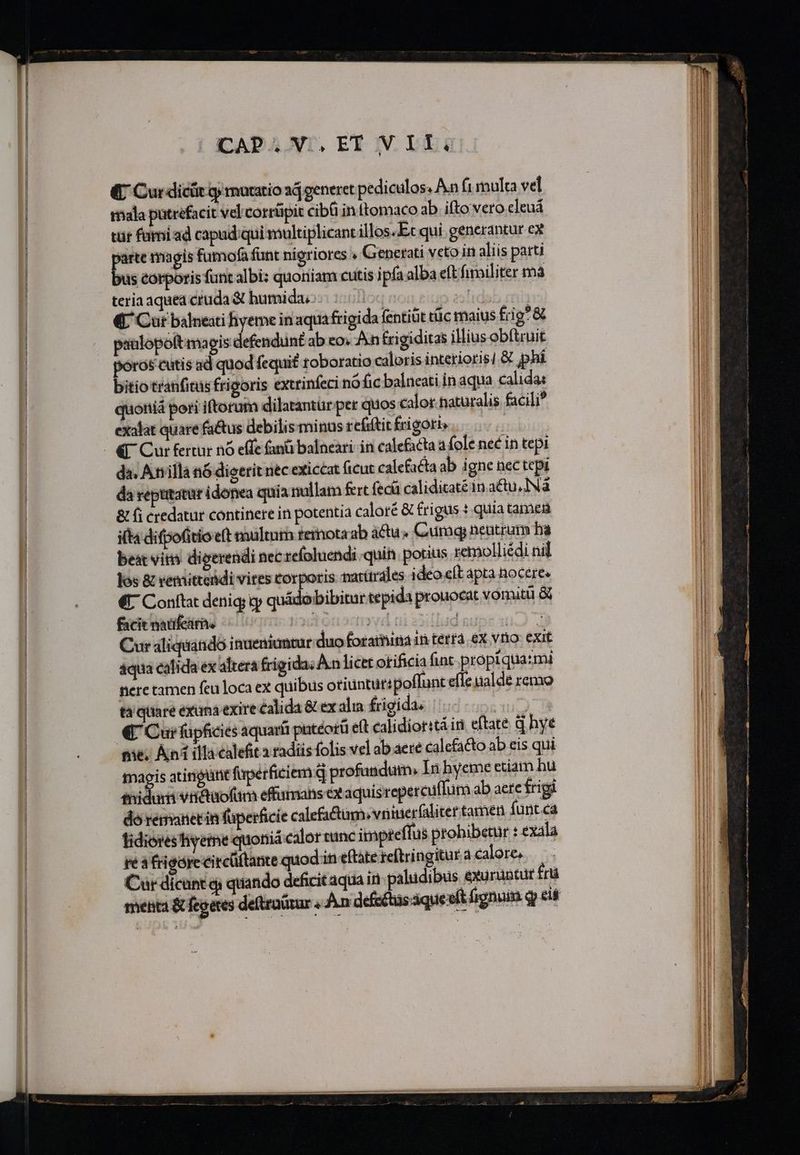 CAP. V. ET VII.
¶ Cur dicũt ꝙ mutatio aq̃ generet pediculos. An ſi multa vel
mala putrefacit vel corrũpit cibũ in ſtomaco ab iſto vero eleuã
tur fumi ad capud qui multiplicant illos. Et qui generantur ex
parte magis fumoſa ſunt nigriores. Generati vero in aliis parti
bus corporis ſunt albi: quoniam cutis ipſa alba eſt ſimiliter ma
teria aquea cruda & humida.
¶ Cur balneati hyeme in aqua frigida ſentiũt tũc maius frig⁹ &
paulopoſt magis defendunt̃ ab eo. An frigiditas illius obſtruit
poros cutis ad quod ſequit̃ roboratio caloris interioris/ & ꝓhi
bitio tranſitus frigoris extrinſeci nõ ſic balneati in aqua calida:
quoniã pori iſtorum dilatantur per quos calor naturalis facili⁹
exalat quare factus debilis minus reſiſtit frigori.
¶ Cur fertur nõ eſſe ſanũ balneari in calefacta a ſole nec in tepi
da. An illa nõ digerit nec exiccat ſicut calefacta ab igne nec tepi
da reputatur idonea quia nullam fert ſecũ caliditatẽ in actu. Nã
& ſi credatur continere in potentia calorẽ & frigus: quia tamen
iſta diſpoſitio eſt multum remota ab actu. Cumq; neutrum ha
beat vim digerendi nec reſoluendi quin potius remolliẽdi nil
los & remittendi vires corporis naturales ideo eſt apta nocere.
¶ Conſtat deniq; ꝙ quãdo bibitur tepida prouocat vomitũ &
facit nauſeam.
Cur aliquando inueniuntur duo foramina in terra ex vno exit
aqua calida ex altera frigida. An licet orificia ſint propiqua: mi
nere tamen ſeu loca ex quibus oriuntur: poſſunt eſſe ualde remo
ta quare ex una exire calida & ex alia frigida.
¶ Cur ſupficies aquarũ puteorũ eſt calidior: tã in eſtate q̃ hye
me. An ĩ illa calefit a radiis ſolis vel ab aere calefacto ab eis qui
magis atingunt ſuperficiem q̃ profundum. In hyeme etiam hu
midum vnctuoſum effumans ex aquis repercuſſum ab aere frigi
do remanet in ſuperficie calefactum. vniuerſaliter tamen ſunt ca
lidiores hyeme quoniã calor tunc impreſſus prohibetur: exala
re a frigore circũſtante quod in eſtate reſtringitur a calore.
Cur dicunt ꝙ quando deficit aqua in paludibus exuruntur fru
menta & ſegetes deſtruũtur. An defectus aque eſt ſignum ꝙ eis